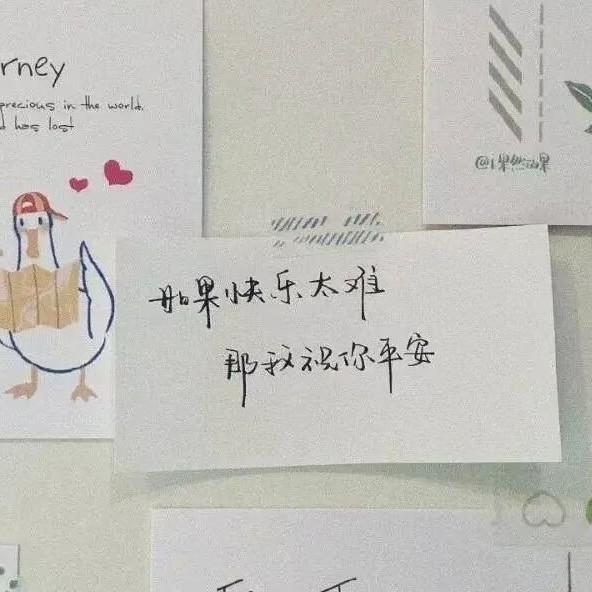 rney
precious in the world.
has lost
如果快乐太难
那我祝你平安